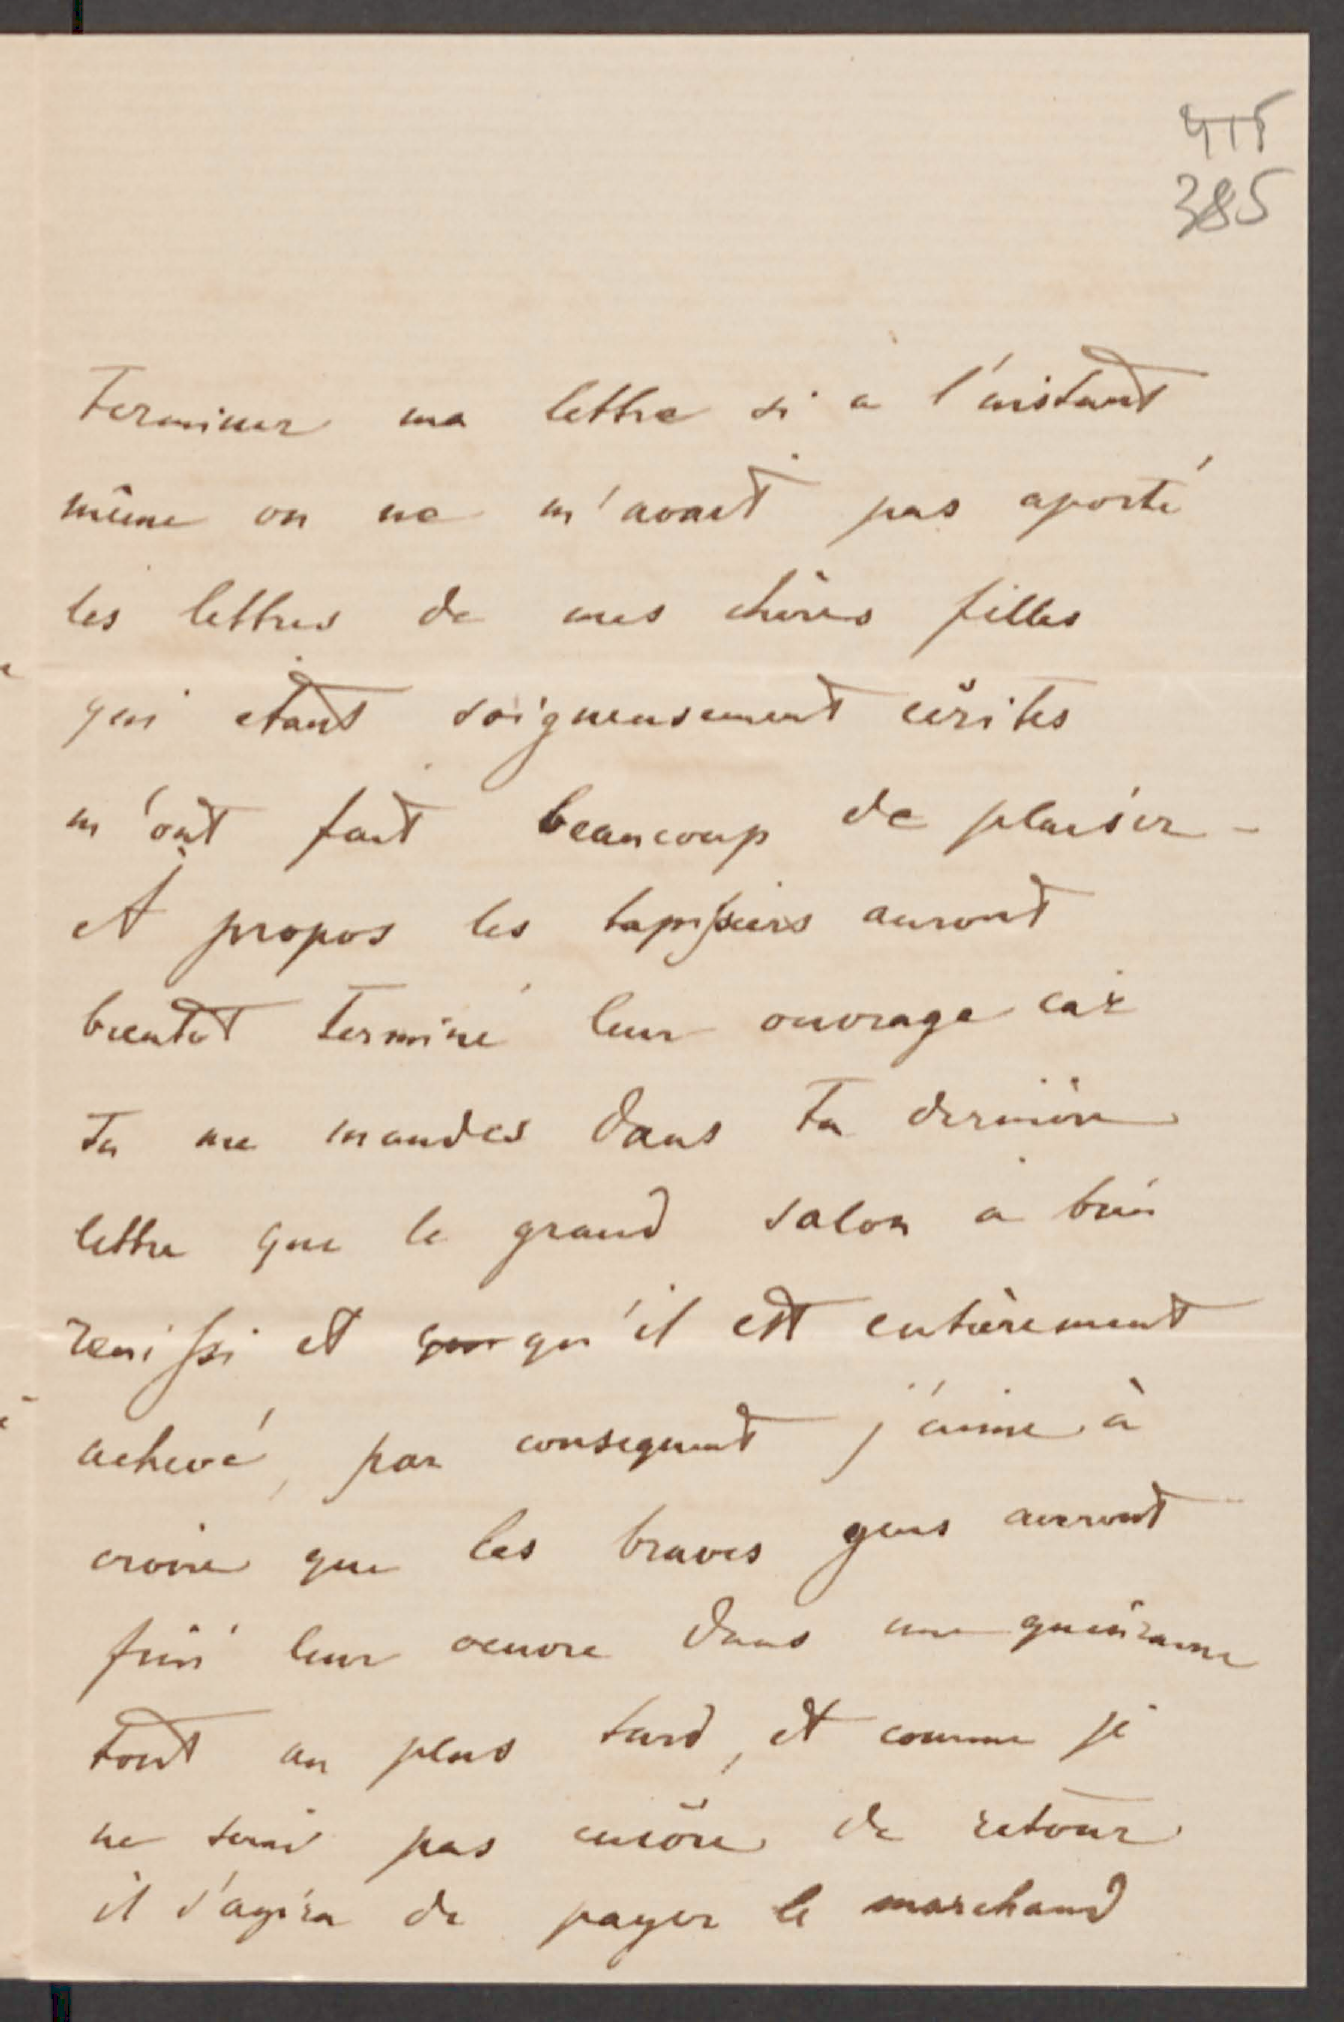 415
385
terminer ma lettre si a l'instant
même on ne m'avait pas aporté
les lettres de mes chères filles
qui etant soigneusement ecrites
m'ont fait beaucoup de plaisir -
A propos les tapissiers auront
bientot terminé leur ouvrage car
tu me mandes dans ta dernière
lettre que le grand salon a bien
reuissi et que qu'il est entièrement
achevé, par consequent j'aime à
croire que les braves gens auront
fini leur oeuvre dans une quinzaine
tout au plus tard, et comme je
ne serai pas encore de retour
il s'agira de payer le marchand